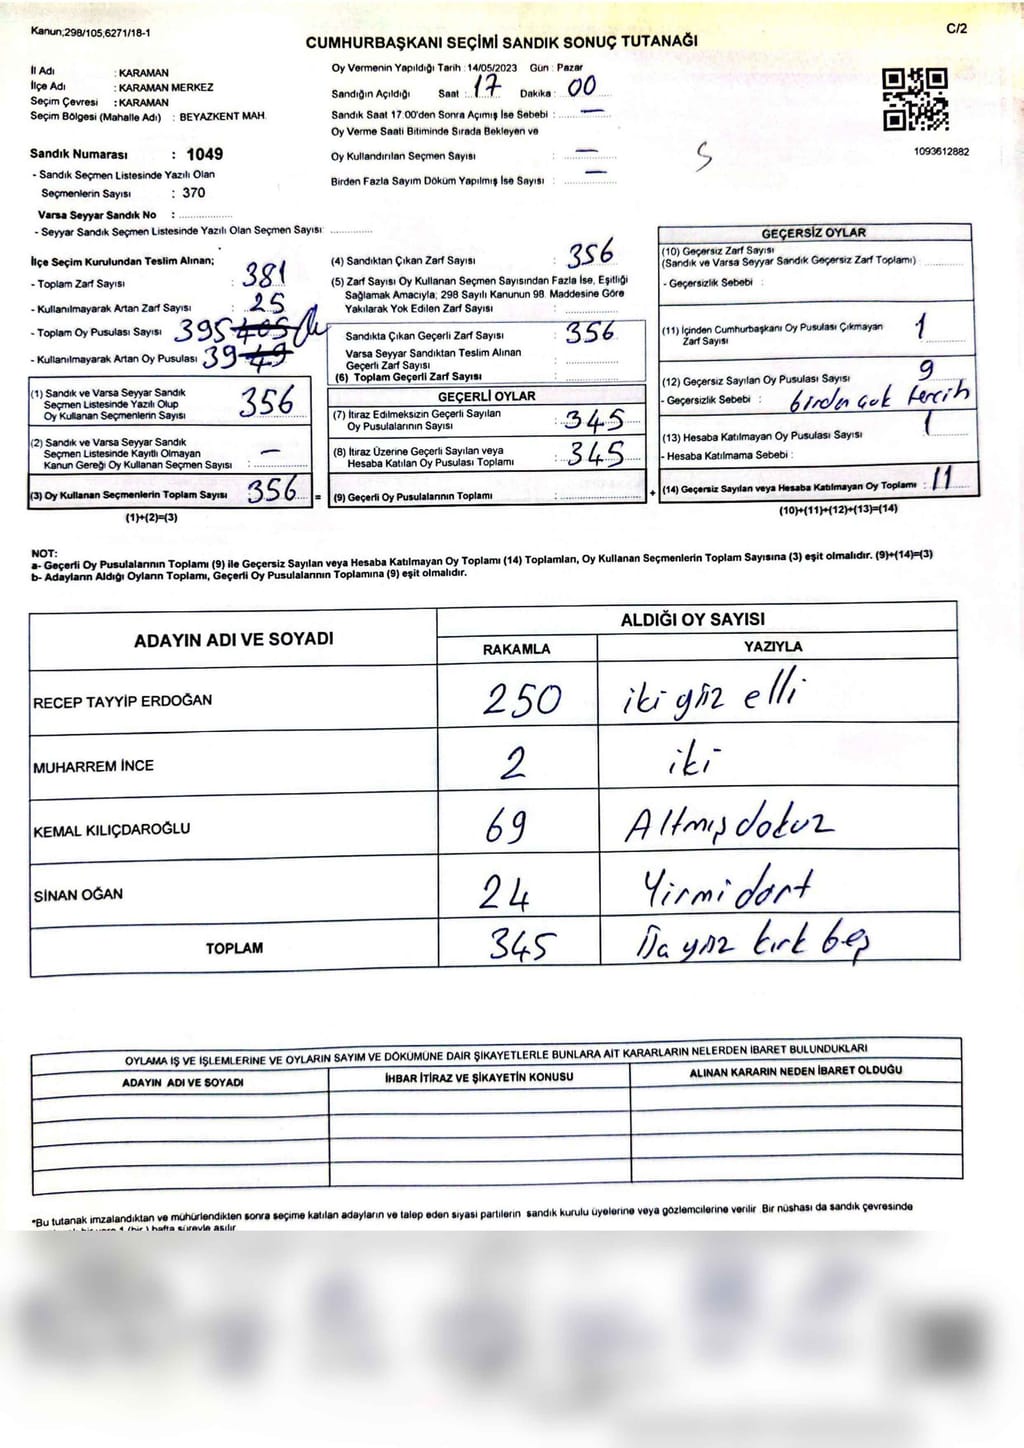 Kanun;298/105,6271/18-1
C/2
CUMHURBAŞKANI SEÇİMİ SANDIK SONUÇ TUTANAĞI
İl Adı : KARAMAN
İlçe Adı : KARAMAN MERKEZ
Seçim Çevresi : KARAMAN
Seçim Bölgesi (Mahalle Adı) : BEYAZKENT MAH.
Sandık Numarası : 1049
- Sandık Seçmen Listesinde Yazılı Olan
Seçmenlerin Sayısı : 370
Varsa Seyyar Sandık No :
- Seyyar Sandık Seçmen Listesinde Yazılı Olan Seçmen Sayısı:
Oy Vermenin Yapıldığı Tarih : 14/05/2023 Gün : Pazar
Sandığın Açıldığı Saat : 17 Dakika : 00
Sandık Saat 17:00'den Sonra Açımış İse Sebebi : —
Oy Verme Saati Bitiminde Sırada Bekleyen ve
Oy Kullandırılan Seçmen Sayısı : —
Birden Fazla Sayım Döküm Yapılmış İse Sayısı : —
1093612882
İlçe Seçim Kurulundan Teslim Alınan;
- Toplam Zarf Sayısı : 381
- Kullanılmayarak Artan Zarf Sayısı : 25
- Toplam Oy Pusulası Sayısı 395 405
- Kullanılmayarak Artan Oy Pusulası 39 49
(1) Sandık ve Varsa Seyyar Sandık
Seçmen Listesinde Yazılı Olup
Oy Kullanan Seçmenlerin Sayısı 356
(2) Sandık ve Varsa Seyyar Sandık
Seçmen Listesinde Kayıtlı Olmayan
Kanun Gereği Oy Kullanan Seçmen Sayısı : —
(3) Oy Kullanan Seçmenlerin Toplam Sayısı 356 =
(1)+(2)=(3)
(4) Sandıktan Çıkan Zarf Sayısı : 356
(5) Zarf Sayısı Oy Kullanan Seçmen Sayısından Fazla İse, Eşitliği
Sağlamak Amacıyla; 298 Sayılı Kanunun 98. Maddesine Göre
Yakılarak Yok Edilen Zarf Sayısı :
Sandıkta Çıkan Geçerli Zarf Sayısı : 356
Varsa Seyyar Sandıktan Teslim Alınan
Geçerli Zarf Sayısı :
(6) Toplam Geçerli Zarf Sayısı :
GEÇERLİ OYLAR
(7) İtiraz Edilmeksizin Geçerli Sayılan
Oy Pusulalarının Sayısı : 345
(8) İtiraz Üzerine Geçerli Sayılan veya
Hesaba Katılan Oy Pusulası Toplamı : 345
(9) Geçerli Oy Pusulalarının Toplamı : +
GEÇERSİZ OYLAR
(10) Geçersiz Zarf Sayısı
(Sandık ve Varsa Seyyar Sandık Geçersiz Zarf Toplamı) :
- Geçersizlik Sebebi :
(11) İçinden Cumhurbaşkanı Oy Pusulası Çıkmayan
Zarf Sayısı : 1
(12) Geçersiz Sayılan Oy Pusulası Sayısı : 9
- Geçersizlik Sebebi : birden çok tercih
(13) Hesaba Katılmayan Oy Pusulası Sayısı : 1
- Hesaba Katılmama Sebebi :
(14) Geçersiz Sayılan veya Hesaba Katılmayan Oy Toplamı : 11
(10)+(11)+(12)+(13)=(14)
NOT:
a- Geçerli Oy Pusulalarının Toplamı (9) ile Geçersiz Sayılan veya Hesaba Katılmayan Oy Toplamı (14) Toplamları, Oy Kullanan Seçmenlerin Toplam Sayısına (3) eşit olmalıdır. (9)+(14)=(3)
b- Adayların Aldığı Oyların Toplamı, Geçerli Oy Pusulalarının Toplamına (9) eşit olmalıdır.
ADAYIN ADI VE SOYADI
ALDIĞI OY SAYISI
RAKAMLA YAZIYLA
RECEP TAYYİP ERDOĞAN 250 iki yüz elli
MUHARREM İNCE 2 iki
KEMAL KILIÇDAROĞLU 69 Altmış dokuz
SİNAN OĞAN 24 Yirmi dört
TOPLAM 345 yüz kırk beş
OYLAMA İŞ VE İŞLEMLERİNE VE OYLARIN SAYIM VE DÖKÜMÜNE DAİR ŞİKAYETLERLE BUNLARA AİT KARARLARIN NELERDEN İBARET BULUNDUKLARI
ADAYIN ADI VE SOYADI İHBAR İTİRAZ VE ŞİKAYETİN KONUSU ALINAN KARARIN NEDEN İBARET OLDUĞU
*Bu tutanak imzalandıktan ve mühürlendikten sonra seçime katılan adayların ve talep eden siyasi partilerin sandık kurulu üyelerine veya gözlemcilerine verilir Bir nüshası da sandık çevresinde
1 (bir) hafta süreyle asılır